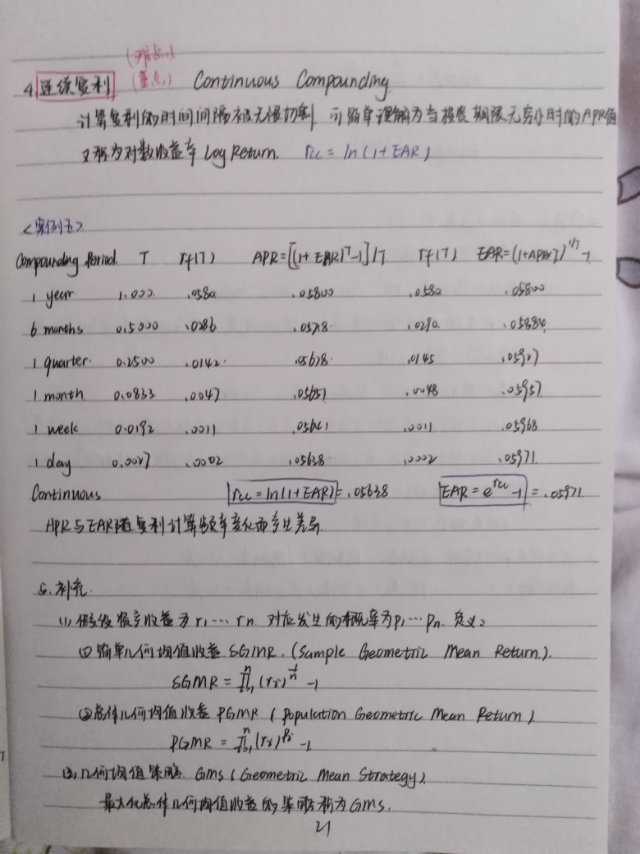 (难点)
4. 连续复利 (重点) Continuous Compounding
计算复利的时间间隔被无限切割 可简单理解为当投资期限无穷小时的APR值
又称为对数收益率 Log Return. rcc = ln(1+EAR)
<案例五>
Compounding Period. T rf(T) APR=[(1+EAR)^T-1]/T rf(T) EAR=(1+APR×T)^1/T-1
1 year 1.000 .0580 .05800 .0580 .05800
6 months 0.5000 .0286 .05718 .0290 .05884
1 quarter. 0.2500 .0142 .05678 .0145 .05927
1 month 0.0833 .0047 .05651 .0048 .05957
1 week 0.0192 .0011 .05641 .0011 .05968
1 day 0.0027 .0002 .05638 .0002 .05971
Continuous rcc = ln(1+EAR) = .05638 EAR = e^rcc-1 = .05971
APR与EAR随复利计算频率变化而产生差异
5. 补充.
(1) 假设投资收益为 r₁ … rn. 对应发生的概率为 p₁ … pn. 定义:
① 简单几何均值收益 SGMR. (Sample Geometric Mean Return).
SGMR = ∏ⁿᵢ₌₁ (rᵢ)^1/n - 1
② 总体几何均值收益 PGMR (Population Geometric Mean Return)
PGMR = ∏ⁿᵢ₌₁ (rᵢ)^pᵢ - 1
(3) 几何均值策略 Gms (Geometric Mean Strategy)
最大化总体几何均值收益的策略称为Gms.
21